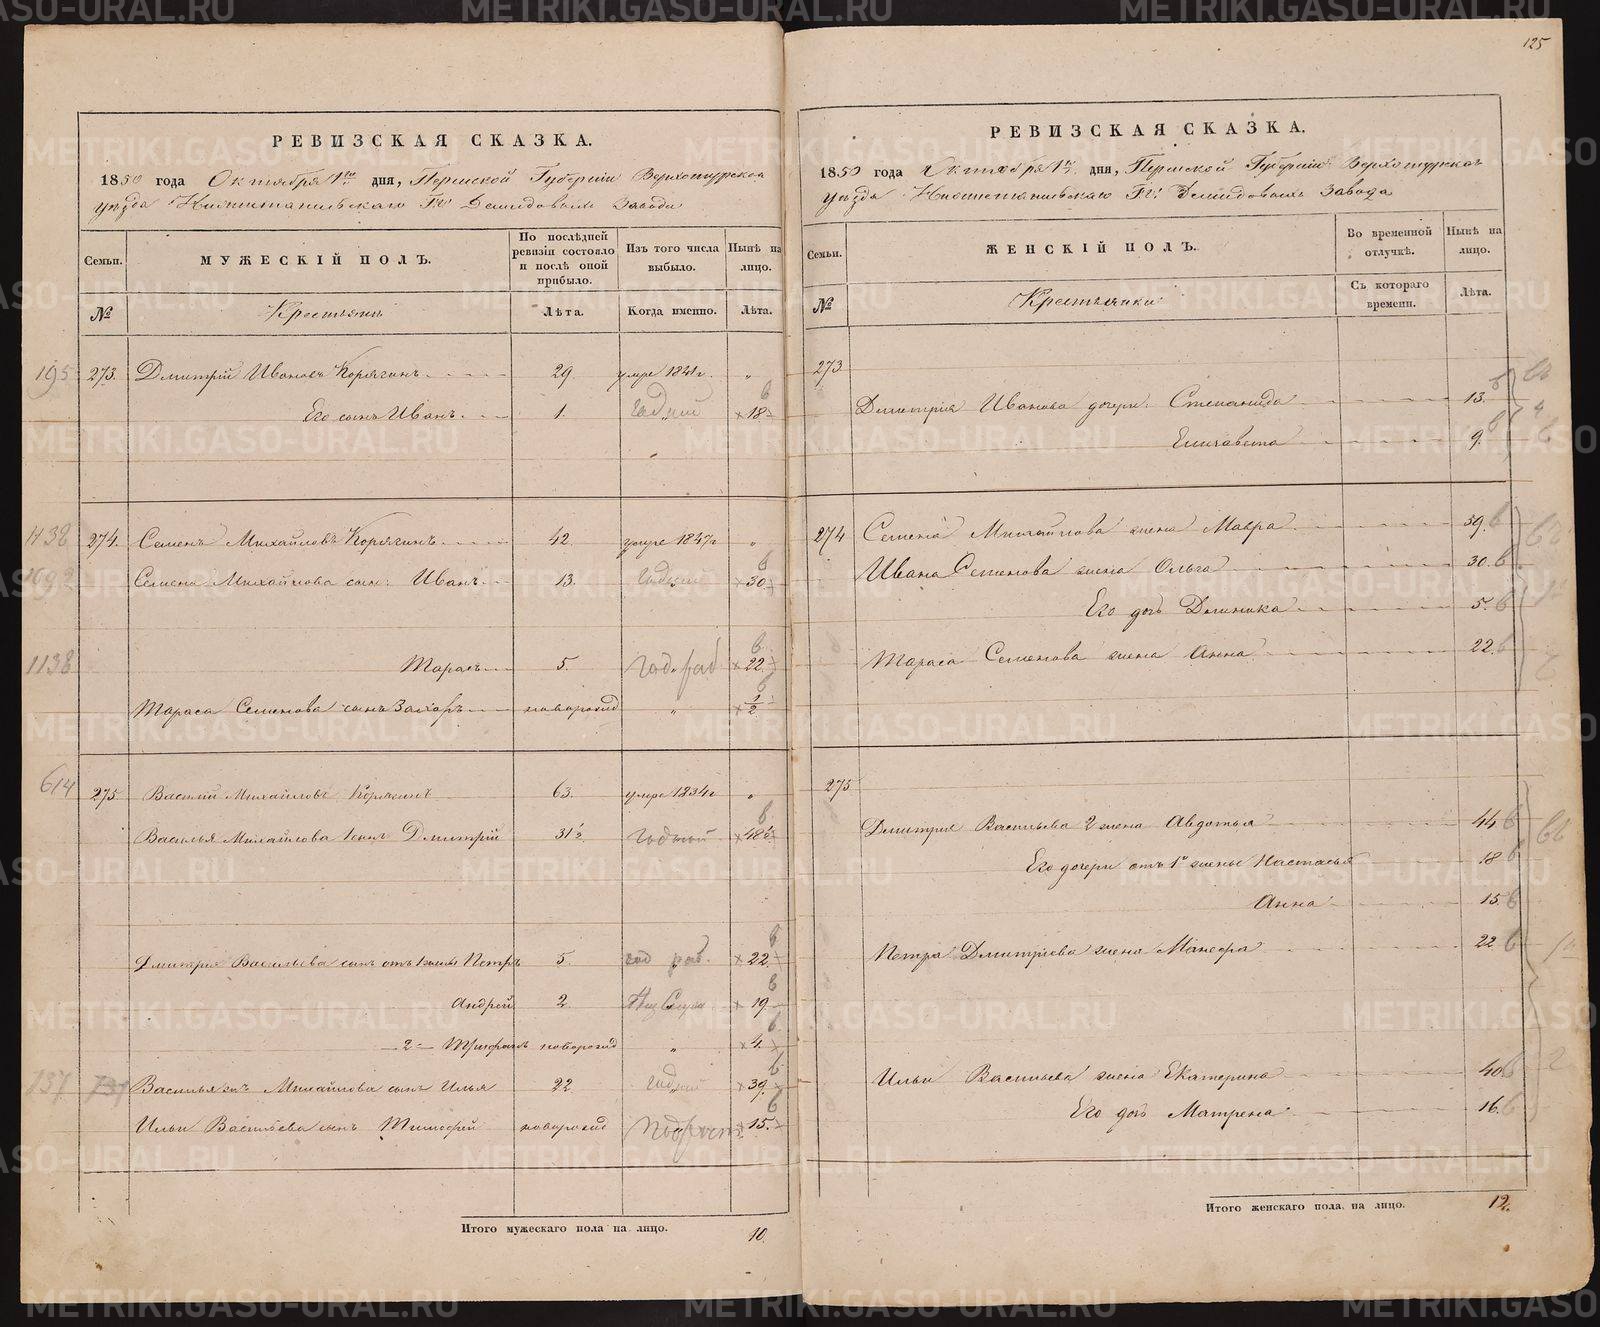 125
РЕВИЗСКАЯ СКАЗКА.
1850 года Октября 1го дня, Пермской Губернии Верхотурскаго
уезда Нижнетагильскаго Гг. Демидовыхъ завода
Семьи. МУЖЕСКІЙ ПОЛЪ. По послѣдней ревизіи состояло и послѣ оной прибыло. Изъ того числа выбыло. Нынѣ на лицо.
№ Крестьяне Лѣта. Когда именно. Лѣта.
195 273. Дмитрій Ивановъ Корягинъ 29 умре 1841г. "
Его сынъ Иванъ 1. годный ×18 в
1138 274. Семенъ Михайловъ Корягинъ 42. умре 1847г "
1092 Семена Михайлова сынъ Иванъ 13. годный ×30 в
1138 Тарасъ 5. год. раб ×22 в
Тараса Семенова сынъ Захаръ новорожд " ×1/2 в
614 275. Василій Михайловъ Корягинъ 63. умре 1834г "
Василья Михайлова 1 сынъ Дмитрій 31½ годный ×48½ в
Дмитрія Васильева сынъ отъ 1 жены Петръ 5. год раб. ×22 в
Андрей 2. ×19 в
2 новорожд " ×4 в
737 737 Василья Михайлова сынъ Илья 22 годный ×39. в
Ильи Васильева сынъ Тимофей новорожд подрост ×15. в
Итого мужескаго пола на лицо. 10.
РЕВИЗСКАЯ СКАЗКА.
1850 года Октября 1го дня, Пермской Губерніи Верхотурскаго
уезда Нижнетагильскаго Гг. Демидовыхъ завода
Семьи. ЖЕНСКІЙ ПОЛЪ. Во временной отлучкѣ. Нынѣ на лицо.
№ Крестьянки Съ котораго времени. Лѣта.
273
Дмитрія Иванова дочери: Степанида 13. в
Елизавета 9. в
274 Семена Михайлова жена Мавра 59. в
Ивана Семенова жена Ольга 30. в
Его дочь Домника 5. в
Тараса Семенова жена Анна 22. в
275
Дмитрія Васильева 2 жена Авдотья 44 в
Его дочери отъ 1й жены Настасья 18 в
Анна 15 в
Петра Дмитріева жена Манефа 22 в
Ильи Васильева жена Екатерина 40 в
Его дочь Матрена 16. в
Итого женскаго пола на лицо. 12.
METRIKI.GASO-URAL.RU